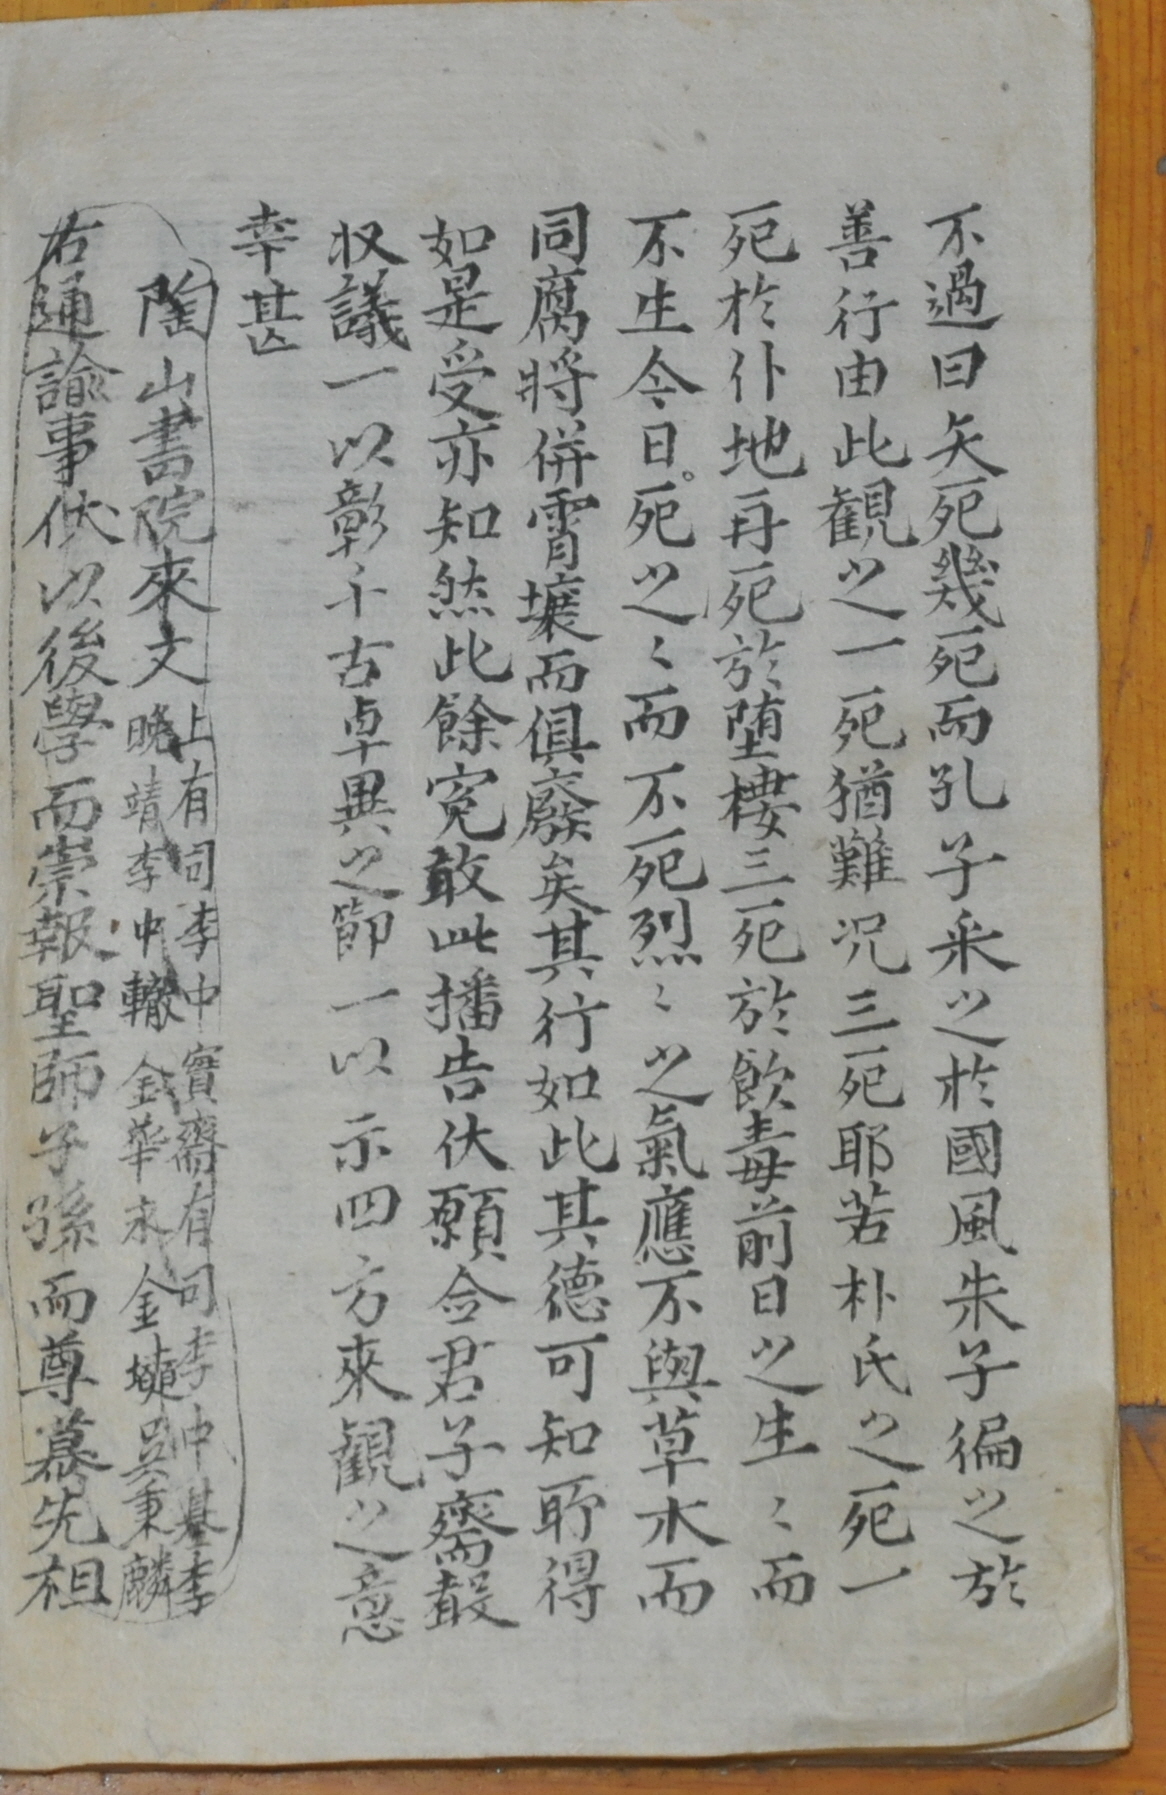 不過曰矢死幾死而孔子采之於國風朱子徧之於
善行由此觀之一死猶難况三死耶若朴氏之死一
死於仆地再死於墮樓三死於飮毒前日之生〻而
不生今日死之〻而不死烈〻之氣應不與草木而
同腐將併霄壤而俱廢矣其行如此其德可知所得
如是受亦知然此餘寃敢此播告伏願僉君子齋
收議一以彰千古卓異之節一以示四方來觀之意
幸甚
陶山書院來文
上有司李中實齋有司李中基李
晩靖李中轍金華永金 吳秉麟
右通諭事伏以後學而崇報聖師子孫而尊慕先祖